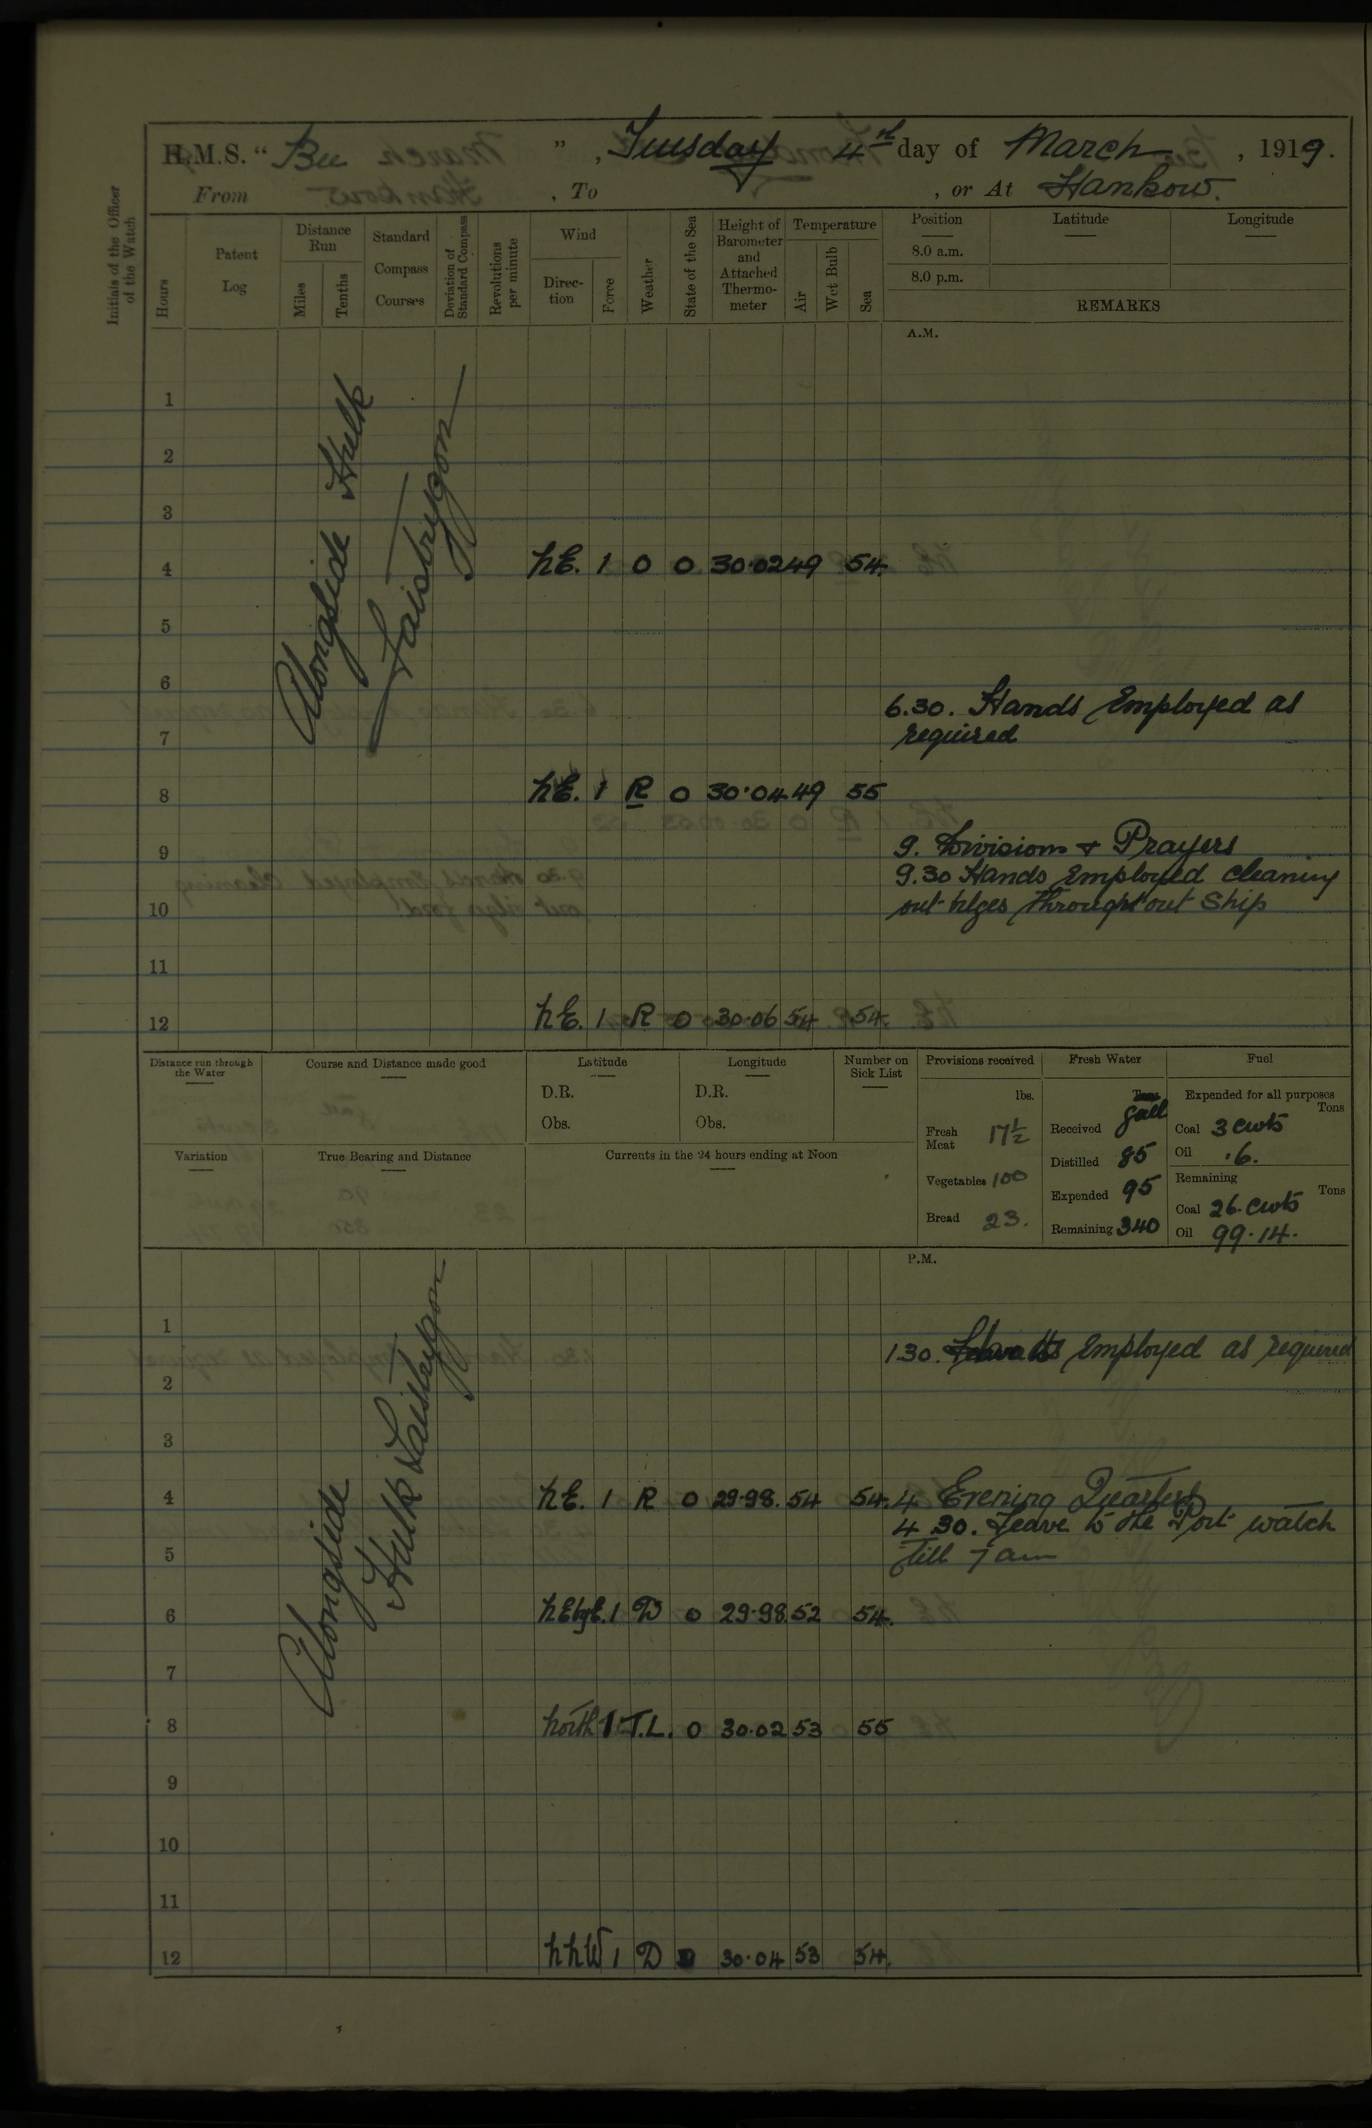 H.M.S. " Bee " , Tuesday 4th day of March , 1919.
From , To , or At Hankow.
Initials of the Officer of the Watch
Hours
Patent Log
Distance Run
Miles
Tenths
Standard Compass Courses
Deviation of Standard Compass
Revolutions per minute
Wind
Direction
Force
Weather
State of the Sea
Height of Barometer and Attached Thermometer
Temperature
Air
Wet Bulb
Sea
Position Latitude Longitude
8.0 a.m.
8.0 p.m.
REMARKS
A.M.
Alongside Hulk
1
2
3
4 NE. 1 O O 30.02 49 54.
5
6
6.30. Hands Employed as
required
7
8 NE. 1 R O 30.04 49 55
9
9. Divisions + Prayers
9.30 Hands Employed cleaning
out bilges throughout Ship
10
11
12 NE. 1 R O 30.06 54 54.
Distance run through the Water
Course and Distance made good
Latitude
D.R.
Obs.
Longitude
D.R.
Obs.
Number on Sick List
Variation
True Bearing and Distance
Currents in the 24 hours ending at Noon
Provisions received
lbs.
Fresh Meat 17½
Vegetables 100
Bread 23.
Fresh Water
Tons
Gall
Received
Distilled 85
Expended 95
Remaining 340
Fuel
Expended for all purposes
Tons
Coal 3 cwts
Oil .6.
Remaining
Tons
Coal 26. cwts
Oil 99.14.
P.M.
Alongside
Hulk
1
1.30. Employed as required
2
3
4 NE. 1 R O 29.98. 54 54. 4 Evening Quarters
4.30. Leave to the Port watch
till 7 am
5
6 NEbyE. 1 D O 29.98. 52 54.
7
8 North 1 T.L. O 30.02 53 55
9
10
11
12 NNW 1 D 30.04 53 54.